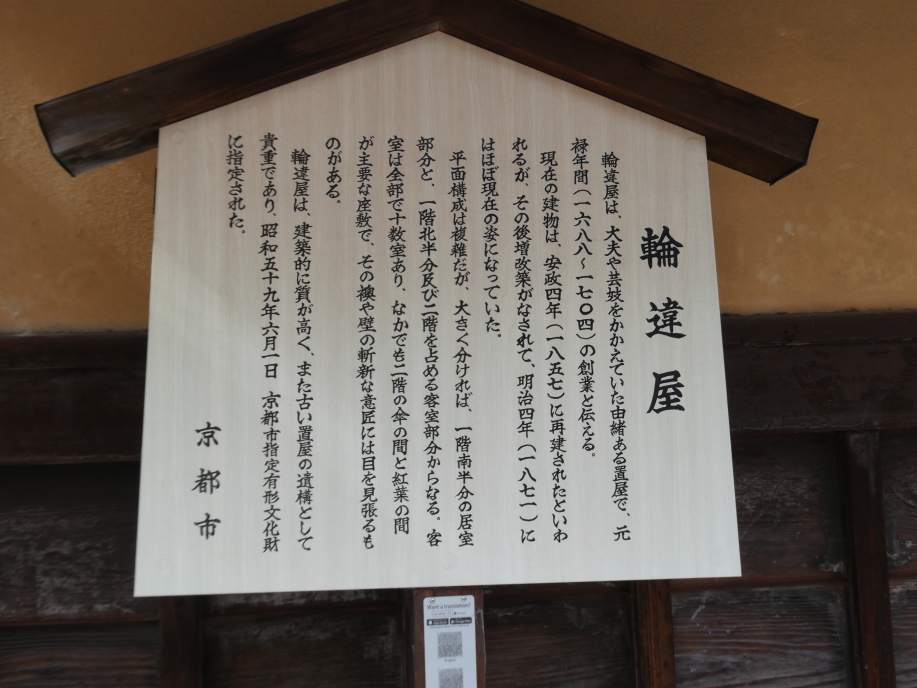 輪違屋
輪違屋は、大夫や芸妓をかかえていた由緒ある置屋で、元
禄年間（一六八八～一七〇四）の創業と伝える。
現在の建物は、安政四年（一八五七）に再建されたといわ
れるが、その後増改築がなされて、明治四年（一八七一）に
はほぼ現在の姿になっていた。
平面構成は複雑だが、大きく分ければ、一階南半分の居室
部分と、一階北半分及び二階を占める客室部分からなる。客
室は全部で十数室あり、なかでも二階の傘の間と紅葉の間
が主要な座敷で、その襖や壁の斬新な意匠には目を見張るも
のがある。
輪違屋は、建築的に質が高く、また古い置屋の遺構として
貴重であり、昭和五十九年六月一日　京都市指定有形文化財
に指定された。
京都市
Want a translation?
English